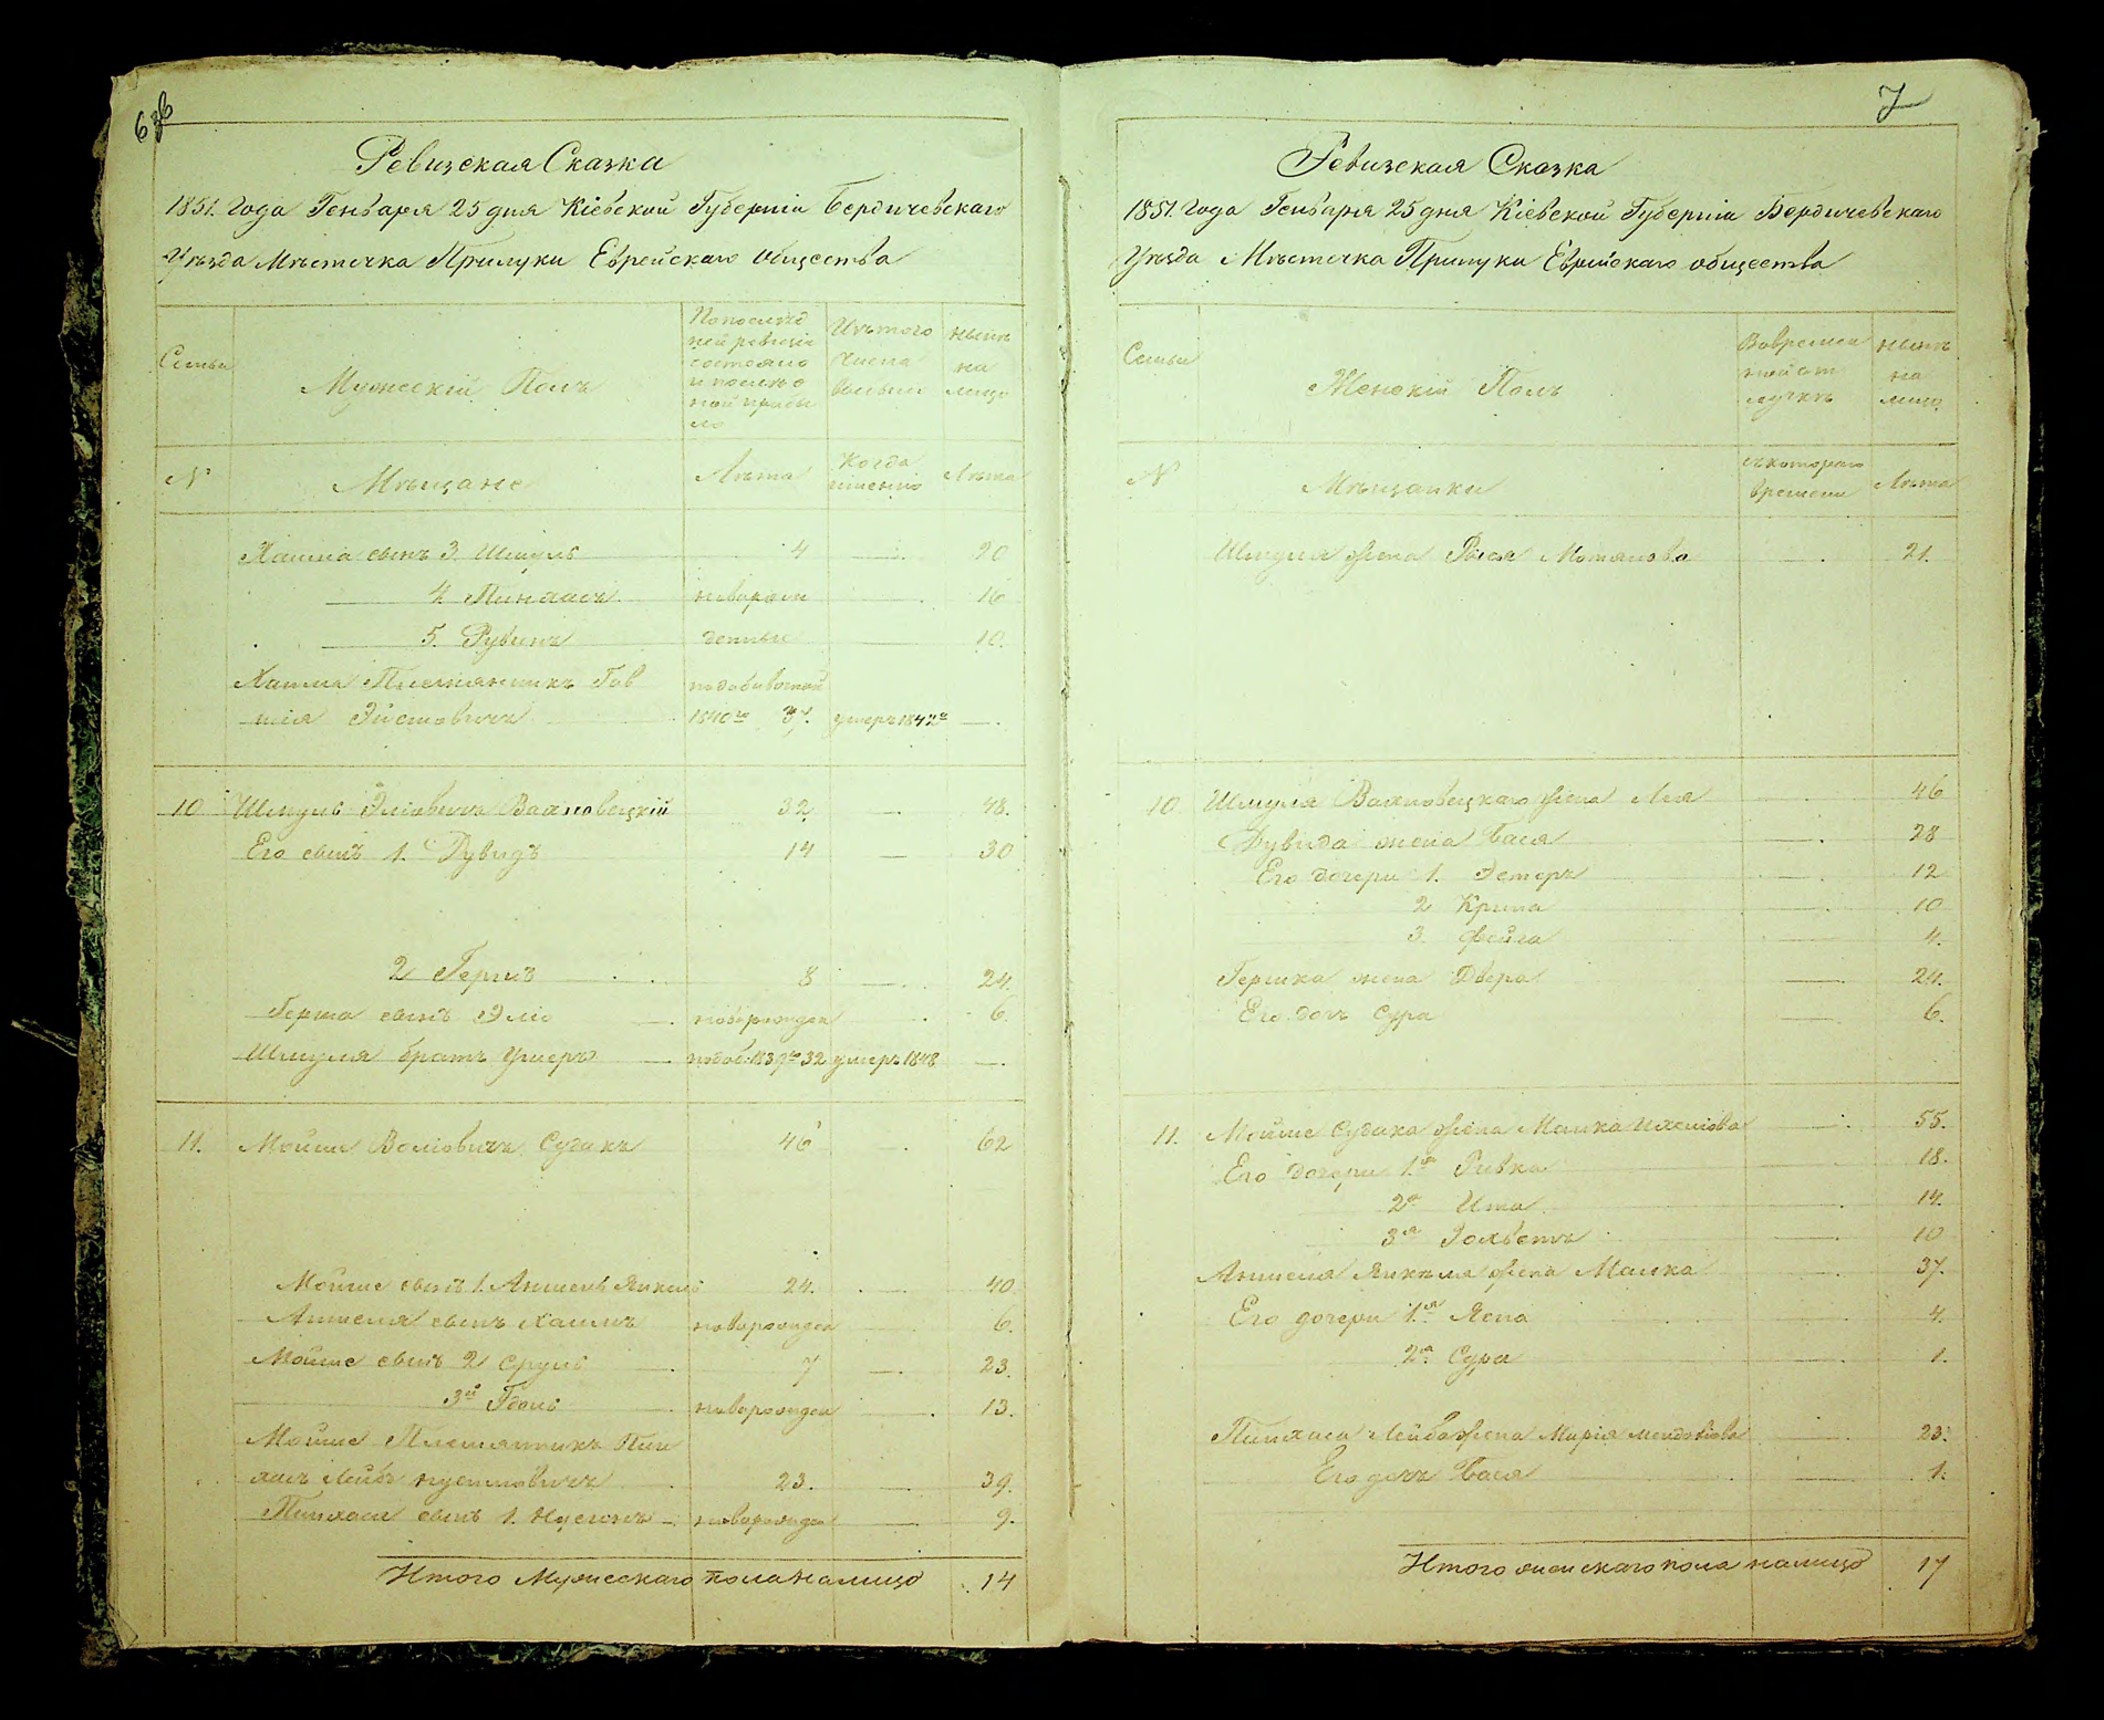 6 об
Ревизская Сказка
1851. года Генваря 25 дня Кіевской Губерніи Бердичевскаго
Уѣзда Мѣстечка Прилуки Еврейскаго общества
Семьи
Мужескій Полъ
По послѣд
ней ревизіи
состояло
и послѣ о
ной прибы
ло
Изъ того
числа
выбыло
нынѣ
на
лицо
N
Мѣщане
Лѣта
Когда
именно
Лѣта
Хаима сынъ 3. Шмуль 4 — 20
4 Пинхасъ новорож — 16
5. Рувинъ денные — 10.
Хаима Племянникъ Гов
шія 1840го 37. умеръ 1842го —.
10 Шмуль Эліовичъ Вахновецкій 32 — 48.
Его сынъ 1. Дувидъ 14 — 30
2 Гершъ — 8 — 24.
Герша сынъ Эліо — новорожден — 6.
Шмуля братъ Ушеръ — подоб. 1837го 32 умеръ 1848 —.
11. Мойше Воліовичъ Судакъ 46 — 62
Мойше сынъ 1. Аншель Янкель 24. — 40
Аншеля сынъ Хаимъ новорожден — 6.
Мойше сынъ 2 Сруль — 7 — 23.
3й Гдаль — новорожден — 13.
Мойше Племянникъ Пин
хасъ Лейбъ Нусимовичъ — 23. — 39.
Пинхаса сынъ 1. Нусимъ — новорожден — 9.
Итого Мужескаго пола налицо 14
7
Ревизская Сказка
1851. года Генваря 25 дня Кіевской Губерніи Бердичевскаго
Уѣзда Мѣстечка Прилуки Еврейскаго общества
Семьи
Женскій Полъ
Во времен
ной от
лучкѣ
нынѣ
на
лицо
N
Мѣщанки
съ котораго
времени
Лѣта
Шмуля жена Рыся — 21.
10 Шмуля Вахновецкаго жена Лея — 46
Дувида жена Бася — 28
Его дочери 1. Эстеръ — 12
2 Крыпа — 10
3. Фейга — 4.
Гершка жена Двера — 24.
Его дочь Сура — 6.
11. Мойше Судака жена Малка — 55.
Его дочери 1я Ривка — 18.
2я Ита — 14.
3я — 10
Аншеля Янкеля жена Малка — 37.
Его дочери 1я — 4.
2я Сура — 1.
Пинхаса Лейба жена Мирія — 23.
Его дочь Бася — 1.
Итого женскаго пола налицо 17